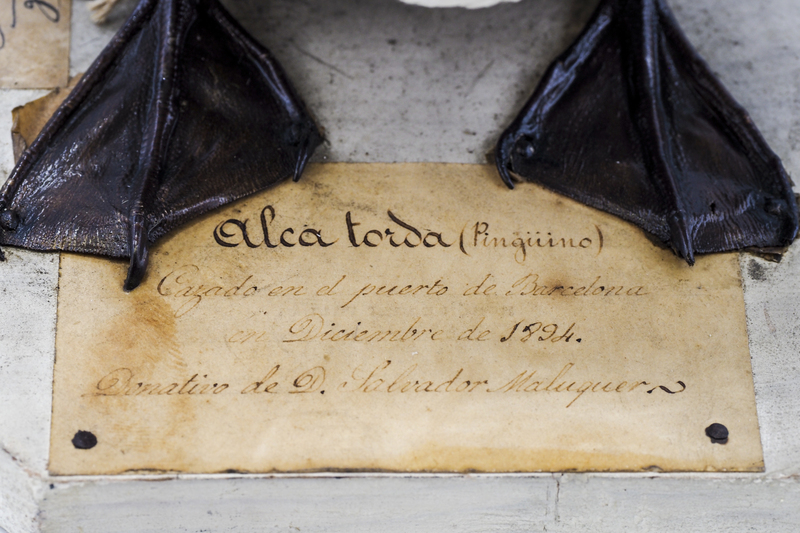 Alca torda (Pingüino)
Cazado en el puerto de Barcelona
en Diciembre de 1894.
Donativo de D. Salvador Maluquer